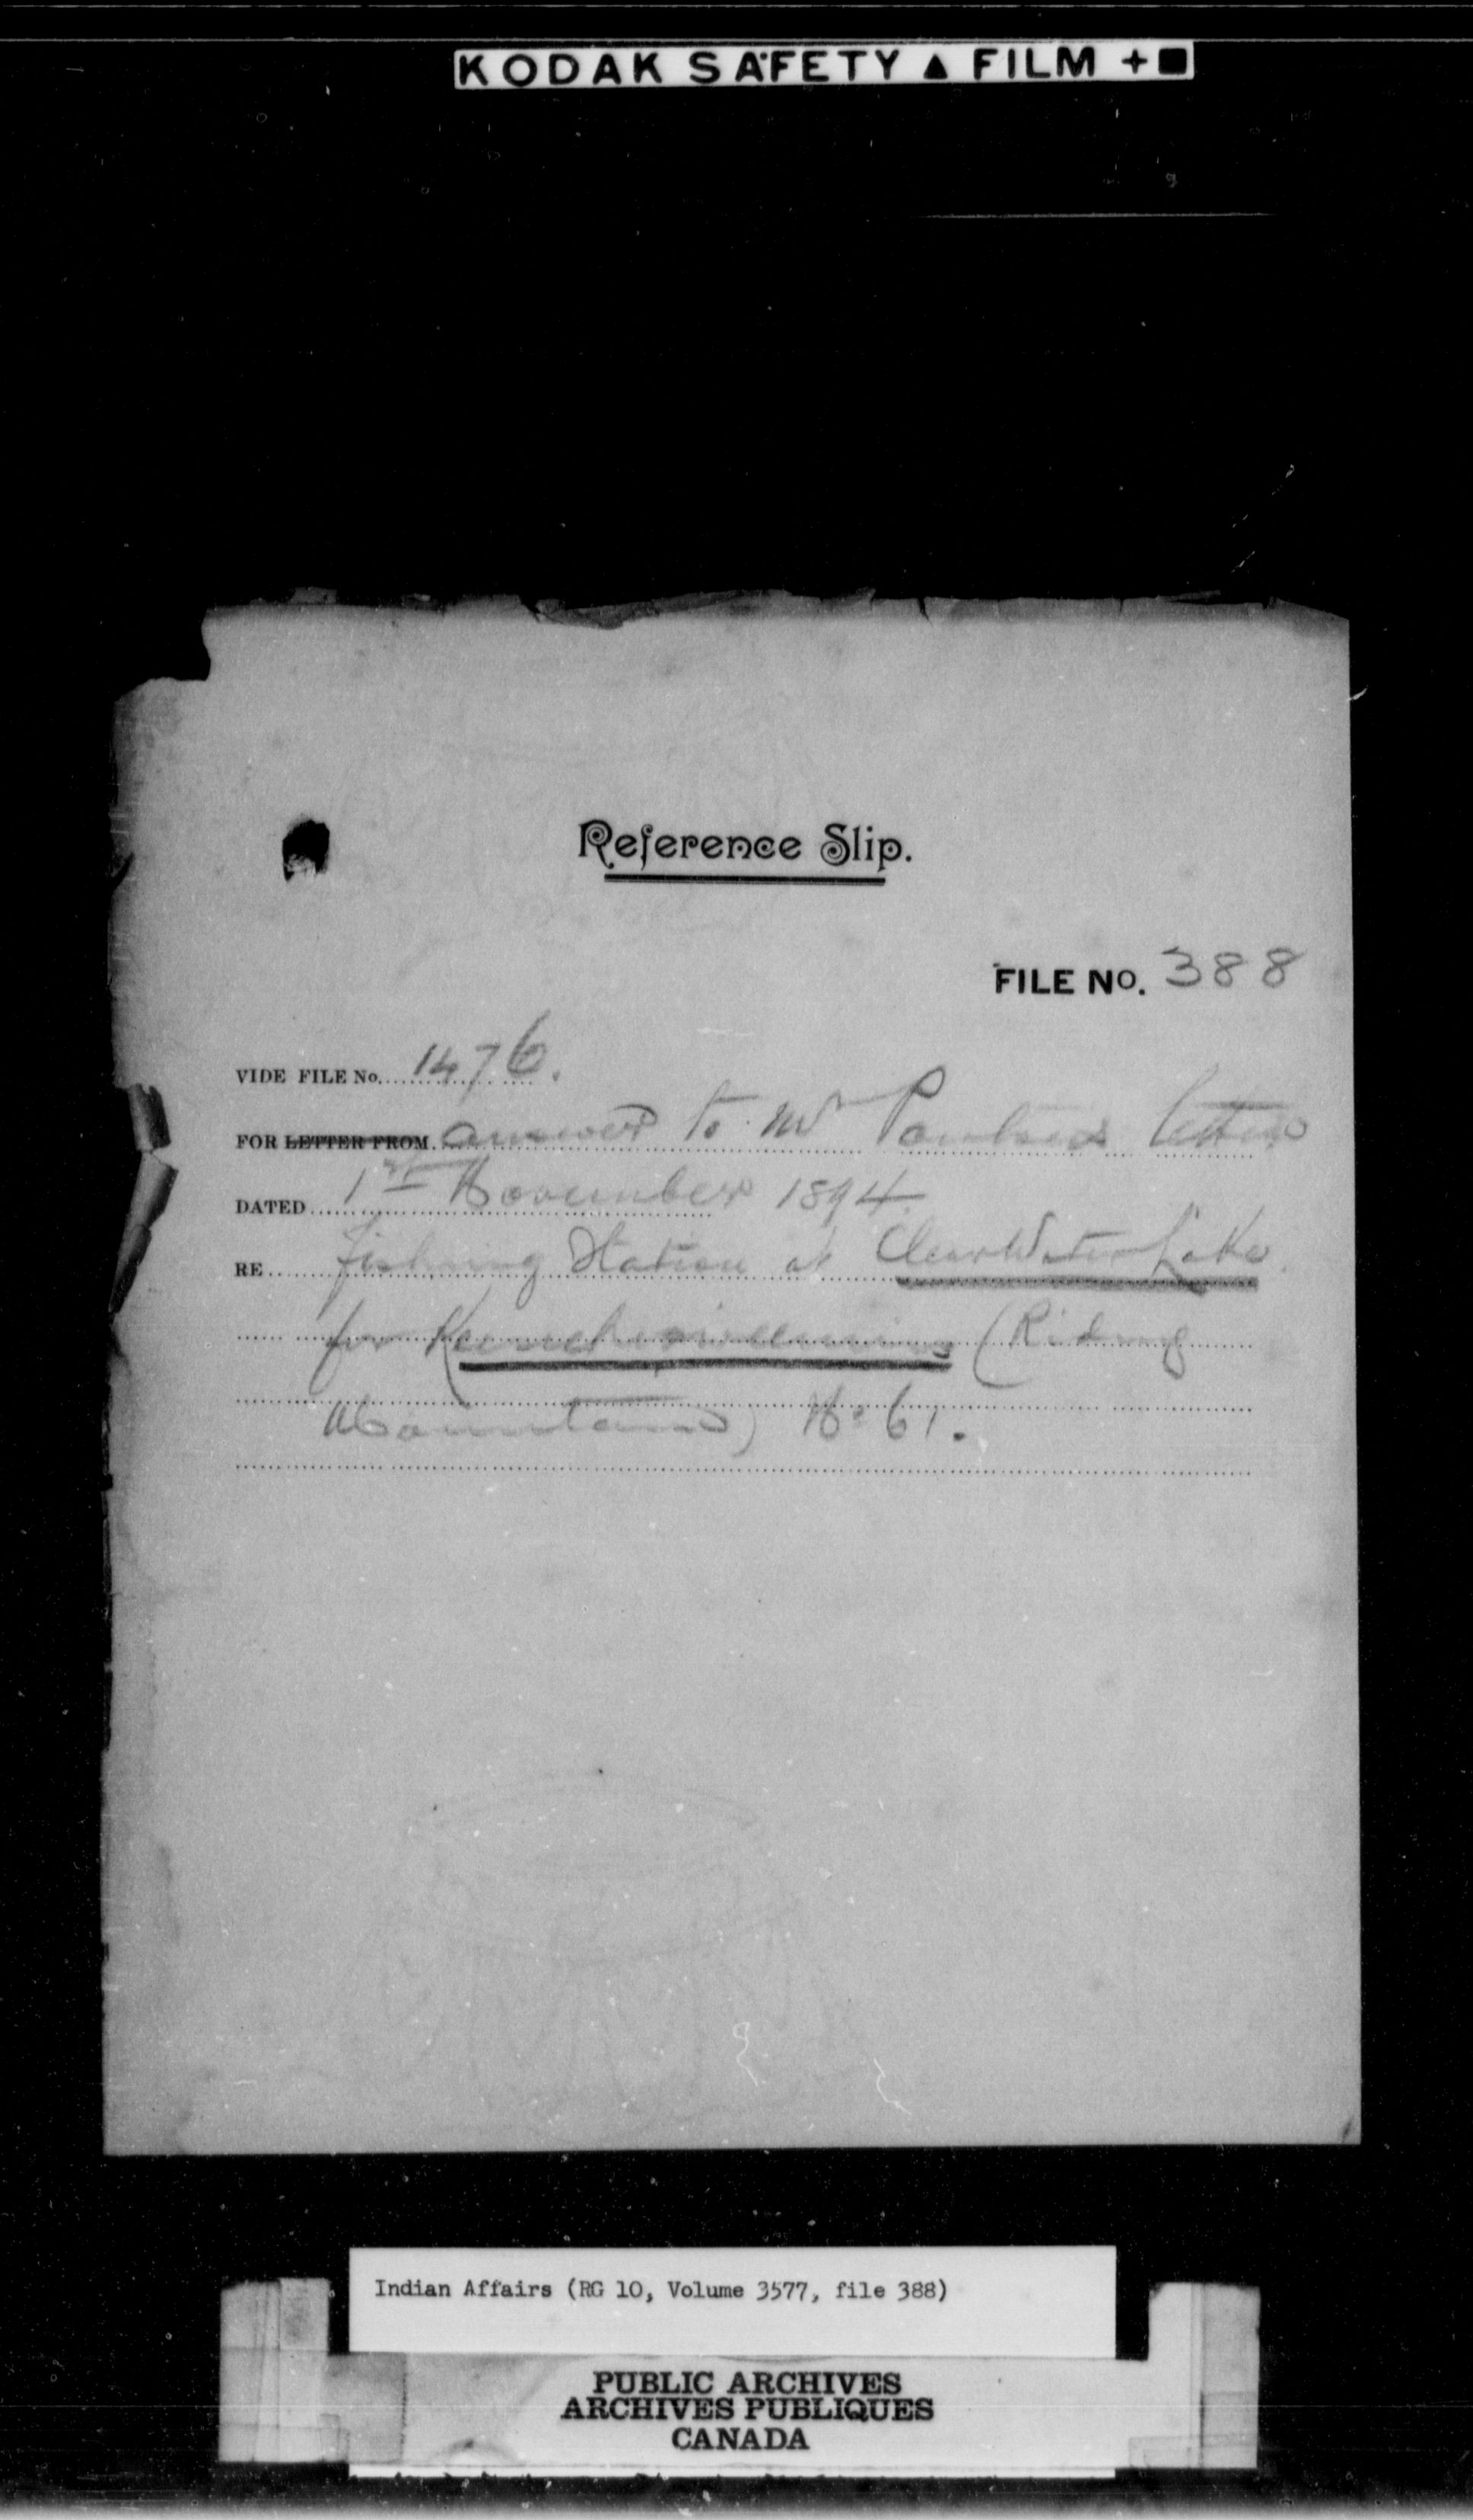 KODAK SAFETY ▲ FILM + ■
Reference Slip.
FILE NO. 388
VIDE FILE No. 1476.
FOR LETTER FROM answer to Mr Ponton's letter
DATED 1st November 1894
RE Fishing Station at Clear Water Lake
for (Riding
Mountain) No 61.
Indian Affairs (RG 10, Volume 3577, file 388)
PUBLIC ARCHIVES
ARCHIVES PUBLIQUES
CANADA